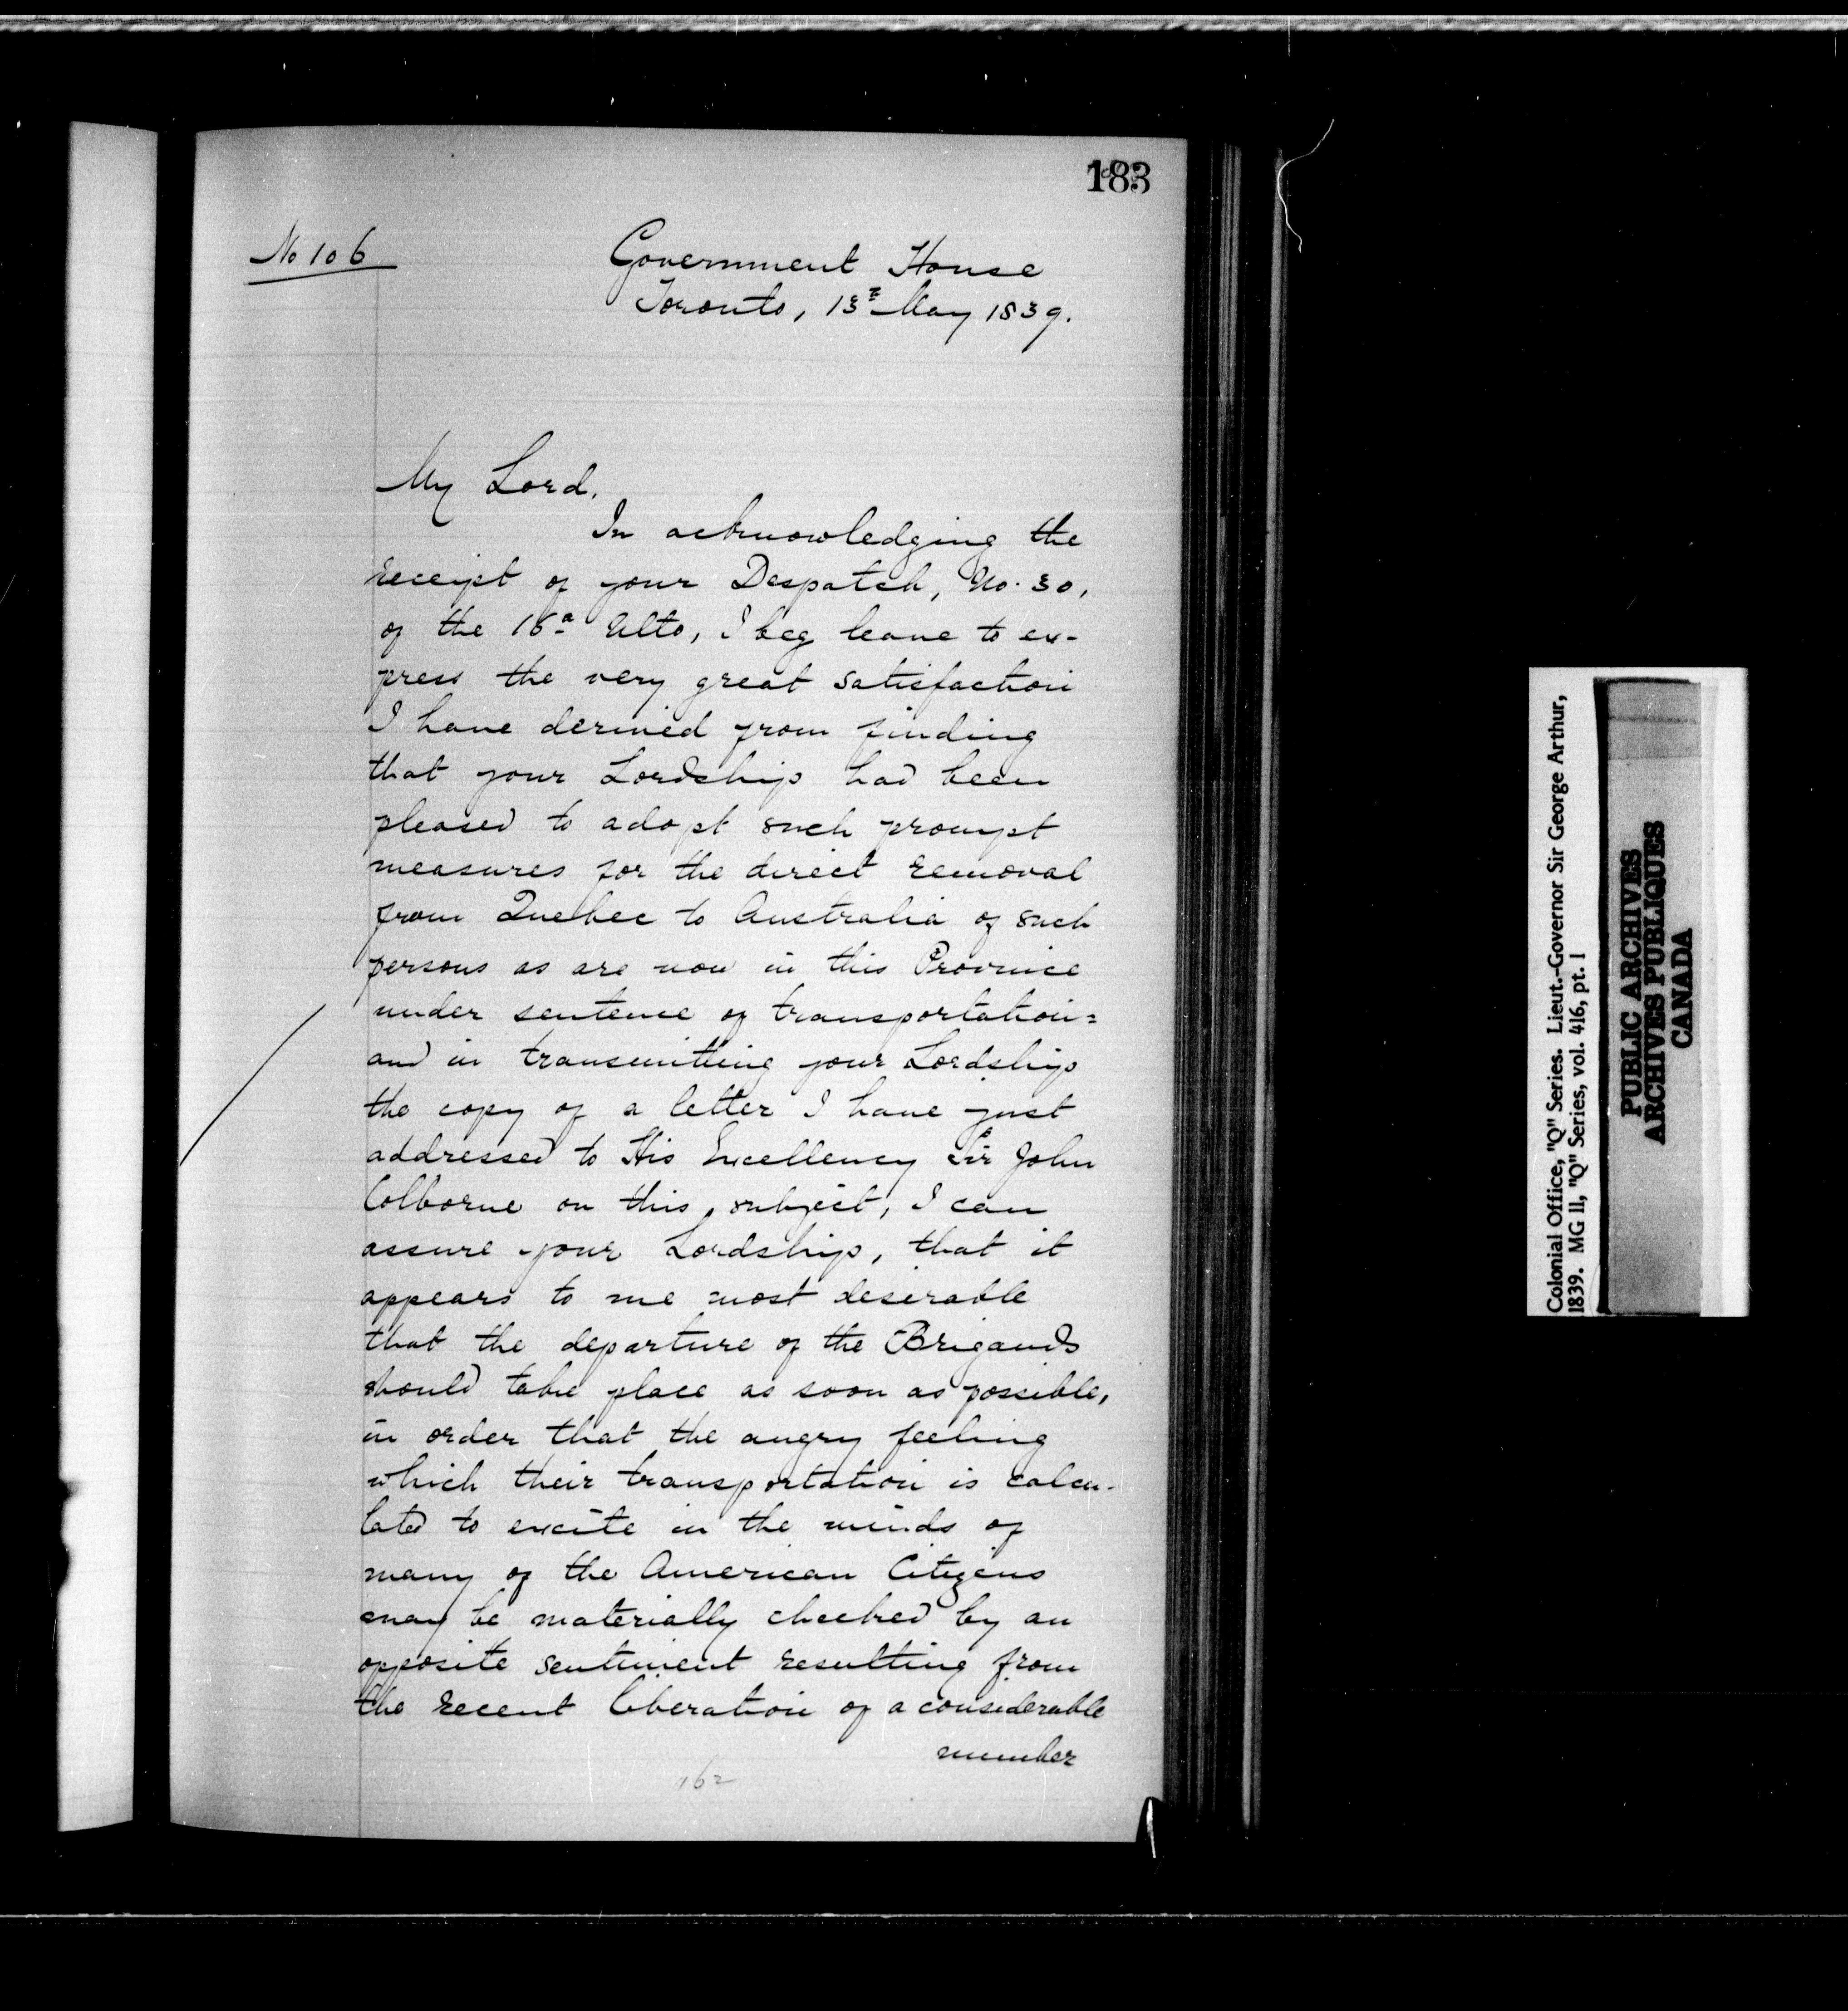 183
No 106
Government House
Toronto, 13th May 1839.
My Lord,
In acknowledging the
receipt of your Despatch, No. 30,
of the 16th Ulto, I beg leave to ex-
press the very great satisfaction
I have derived from finding
that your Lordship had been
pleased to adopt such prompt
measures for the direct removal
from Quebec to Australia of such
persons as are now in this Province
under sentence of transportation=
and in transmitting your Lordship
the copy of a letter I have just
addressed to His Excellency Sir John
Colborne on this subject, I can
assure your Lordship, that it
appears to me most deserable
that the departure of the Brigands
should take place as soon as possible,
in order that the angry feeling
which their transportation is calcu-
lated to excite in the minds of
many of the American Citizens
may be materially checked by an
opposite sentiment resulting from
the recent liberation of a considerable
number
162
Colonial Office, "Q" Series. Lieut.-Governor Sir George Arthur,
1839. MG 11, "Q" Series, vol. 416, pt. 1
PUBLIC ARCHIVES
ARCHIVES PUBLIQUES
CANADA